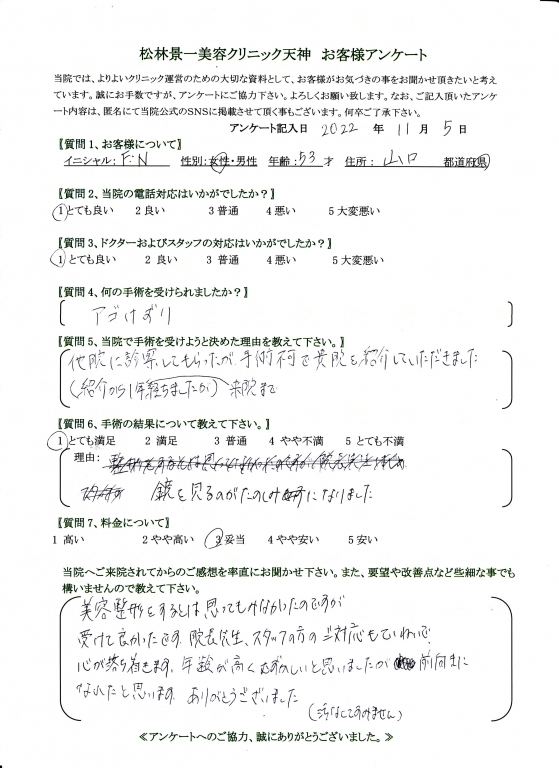 松林景一美容クリニック天神 お客様アンケート
当院では、よりよいクリニック運営のための大切な資料として、お客様がお気づきの事をお聞かせ頂きたいと考え
ています。誠にお手数ですが、アンケートにご協力下さい。よろしくお願い致します。なお、ご記入頂いたアンケ
ート内容は、匿名にて当院公式のSNSに掲載させて頂く事もございます。何卒ご了承下さい。
アンケート記入日 2022 年 11 月 5 日
【質問1、お客様について】
イニシャル: F.N 性別:女性・男性 年齢:53 才 住所: 山口 都道府県
【質問2、当院の電話対応はいかがでしたか?】
1とても良い 2 良い 3 普通 4 悪い 5 大変悪い
【質問3、ドクターおよびスタッフの対応はいかがでしたか?】
1 とても良い 2 良い 3 普通 4 悪い 5 大変悪い
【質問4、何の手術を受けられましたか?】
アゴけずり
【質問5、当院で手術を受けようと決めた理由を教えて下さい。】
他院に診察してもらったが、手術不可で貴院を紹介していただきました
(紹介から1年経ちましたが) 来院まで
【質問6、手術の結果について教えて下さい。】
1とても満足 2 満足 3 普通 4 やや不満 5 とても不満
理由:
鏡を見るのがたのしみになりました
【質問7、料金について】
1 高い 2 やや高い 3 妥当 4 やや安い 5 安い
当院へご来院されてからのご感想を率直にお聞かせ下さい。また、要望や改善点など些細な事でも
構いませんので教えて下さい。
美容整形をするとは思ってもみなかったのですが
受けて良かたです。院長先生、スタッフの方のご対応もていねいで
心が落ち着きます。年齢が高くむずかしいと思いましたが 前向きに
なれたと思います。ありがとうございました
(汚なくてすみません)
≪アンケートへのご協力、誠にありがとうございました。≫